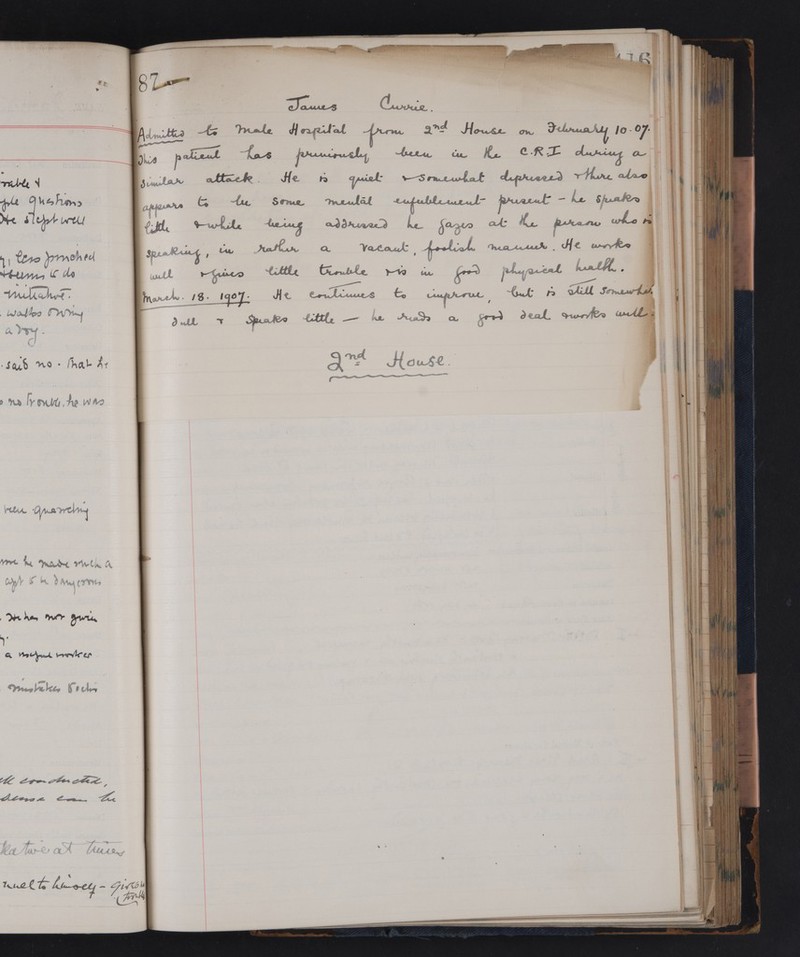 87
116
James Currie.
Admitted to Male Hospital from 2nd House on February 10. 07.
This patient has previously been in the C.R.I during a
similar attack. He is quiet & somewhat depressed & there also
appears to be some mental enfeeblement present - he speaks
little & while being addressed he gazes at the person who is
speaking, in rather a vacant, foolish manner. He works
well & gives little trouble & is in good physical health.
March. 18. 1907. He continues to improve, but is still somewhat
dull & speaks little — he reads a good deal & works well.
2nd House.
questions
He slept well
to do
initiative.
walks
a day.
said no. that he
no trouble. he was
been quarrelling
he made such a
apt to be dangerous
He has not given
a useful worker
mistakes
conducted,
can be
talkative at times
much to himself - gives no
trouble